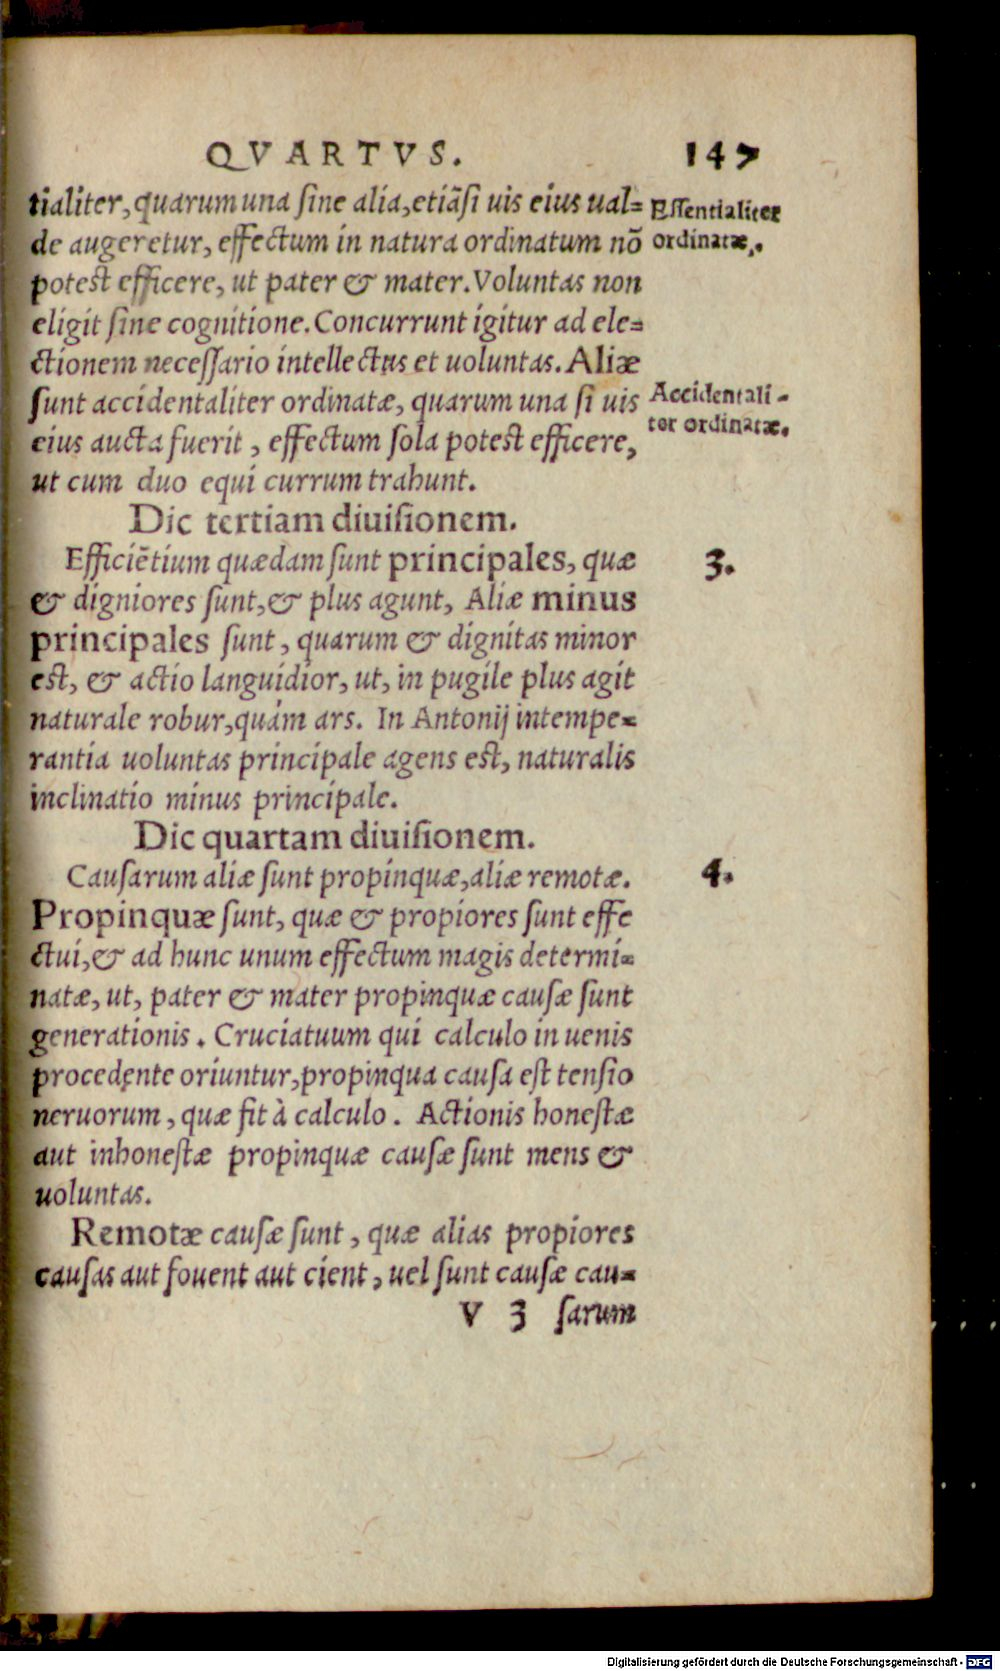 QVARTVS. 147
tialiter, quarum una ſine alia, etiãſi uis eius ual=
Eſſentialiter
de augeretur, effectum in natura ordinatum nõ
ordinatæ,.
potest efficere, ut pater & mater. Voluntas non
eligit ſine cognitione. Concurrunt igitur ad ele=
ctionem neceſſario intellectus et uoluntas. Aliæ
ſunt accidentaliter ordinatæ, quarum una ſi uis
Accidentali-
eius aucta fuerit, effectum ſola potest efficere,
ter ordinatæ.
ut cum duo equi currum trahunt.
Dic tertiam diuiſionem.
Efficiẽtium quædam ſunt principales, quæ
3.
& digniores ſunt, & plus agunt, Aliæ minus
principales ſunt, quarum & dignitas minor
est, & actio languidior, ut, in pugile plus agit
naturale robur, quàm ars. In Antonij intempe=
rantia uoluntas principale agens est, naturalis
inclinatio minus principale.
Dic quartam diuiſionem.
Cauſarum aliæ ſunt propinquæ, aliæ remotæ.
4.
Propinquæ ſunt, quæ & propiores ſunt effe
ctui, & ad hunc unum effectum magis determi=
natæ, ut, pater & mater propinquæ cauſæ ſunt
generationis. Cruciatuum qui calculo in uenis
procedente oriuntur, propinqua cauſa est tenſio
neruorum, quæ fit à calculo. Actionis honeſtæ
aut inhoneſtæ propinquæ cauſæ ſunt mens &
uoluntas.
Remotæ cauſæ ſunt, quæ alias propiores
cauſas aut fouent aut cient, uel ſunt cauſæ cau=
V 3 ſarum
Digitalisierung gefördert durch die Deutsche Forschungsgemeinschaft - DFG